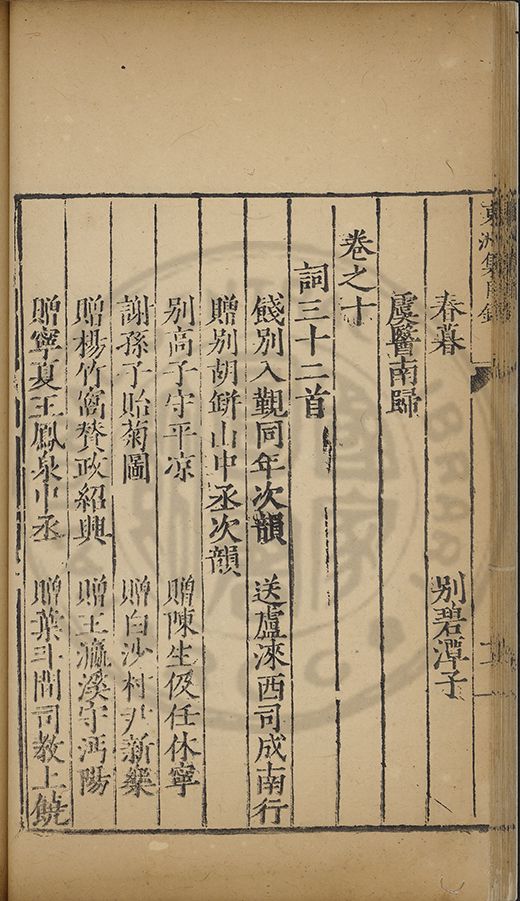 東洲集目錄
春暮　別碧潭子
虞醫南歸
卷之十
詞三十二首
餞別入覲同年次韻　送盧淶西司成南行
贈別胡缾山中丞次韻
別高子守平凉　贈陳生伋任休寧
謝孫子貽菊圖　贈白沙村尹新樂
贈楊竹窩賛政紹興　贈王瀛溪守沔陽
贈寧夏王鳳泉中丞　贈葉斗間司教上饒